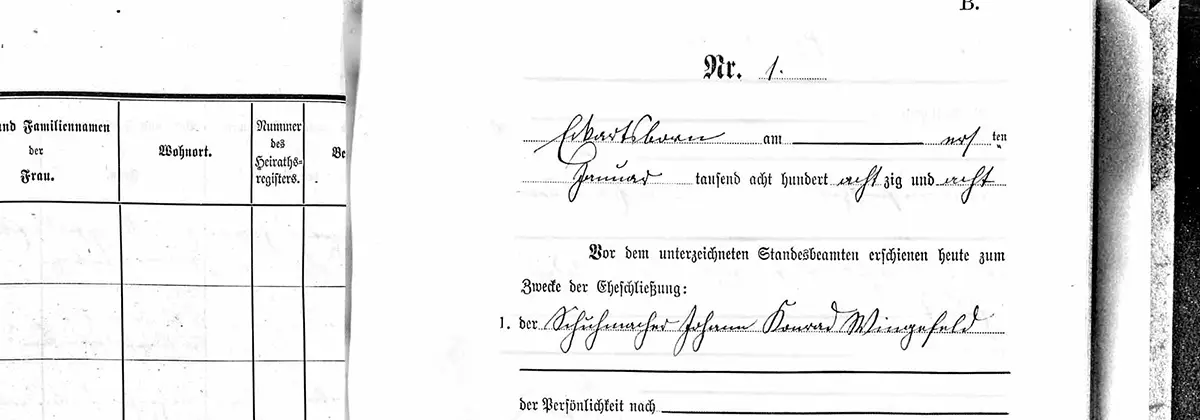 B.
Nr. 1.
und Familiennamen
der
Frau.
Wohnort.
Nummer
des
Heiraths-
registers.
Be
Eckartsborn am ersten
Januar tausend acht hundert achtzig und acht
Vor dem unterzeichneten Standesbeamten erschienen heute zum
Zwecke der Eheschließung:
1. der Schuhmacher Johann Konrad Wingefeld
der Persönlichkeit nach